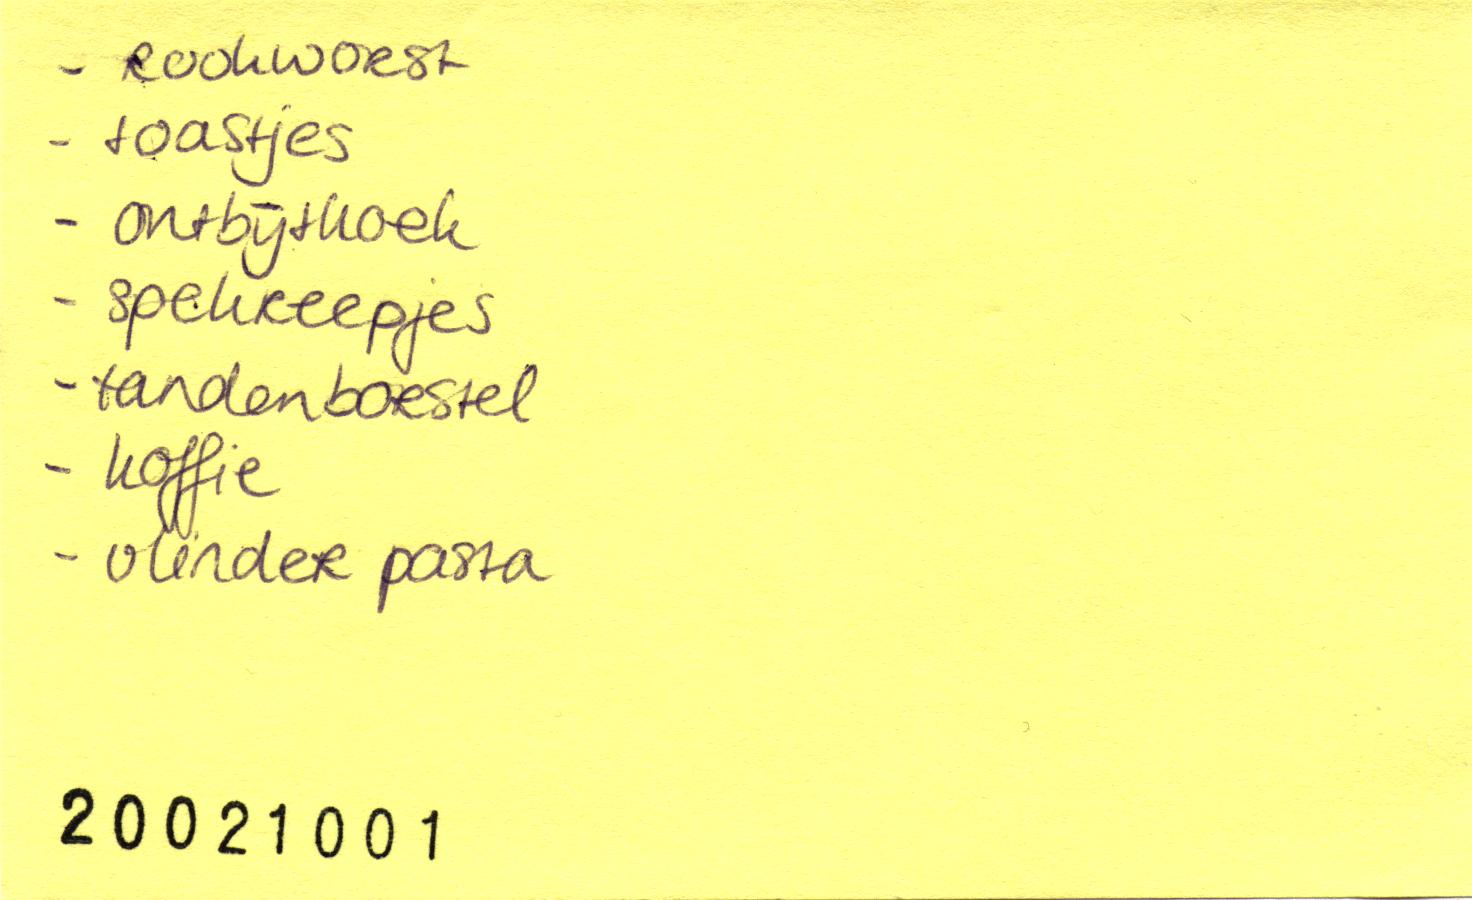 - rookworst
- toastjes
- ontbijtkoek
- spekreepjes
- tandenborstel
- koffie
- vlinder pasta
20021001